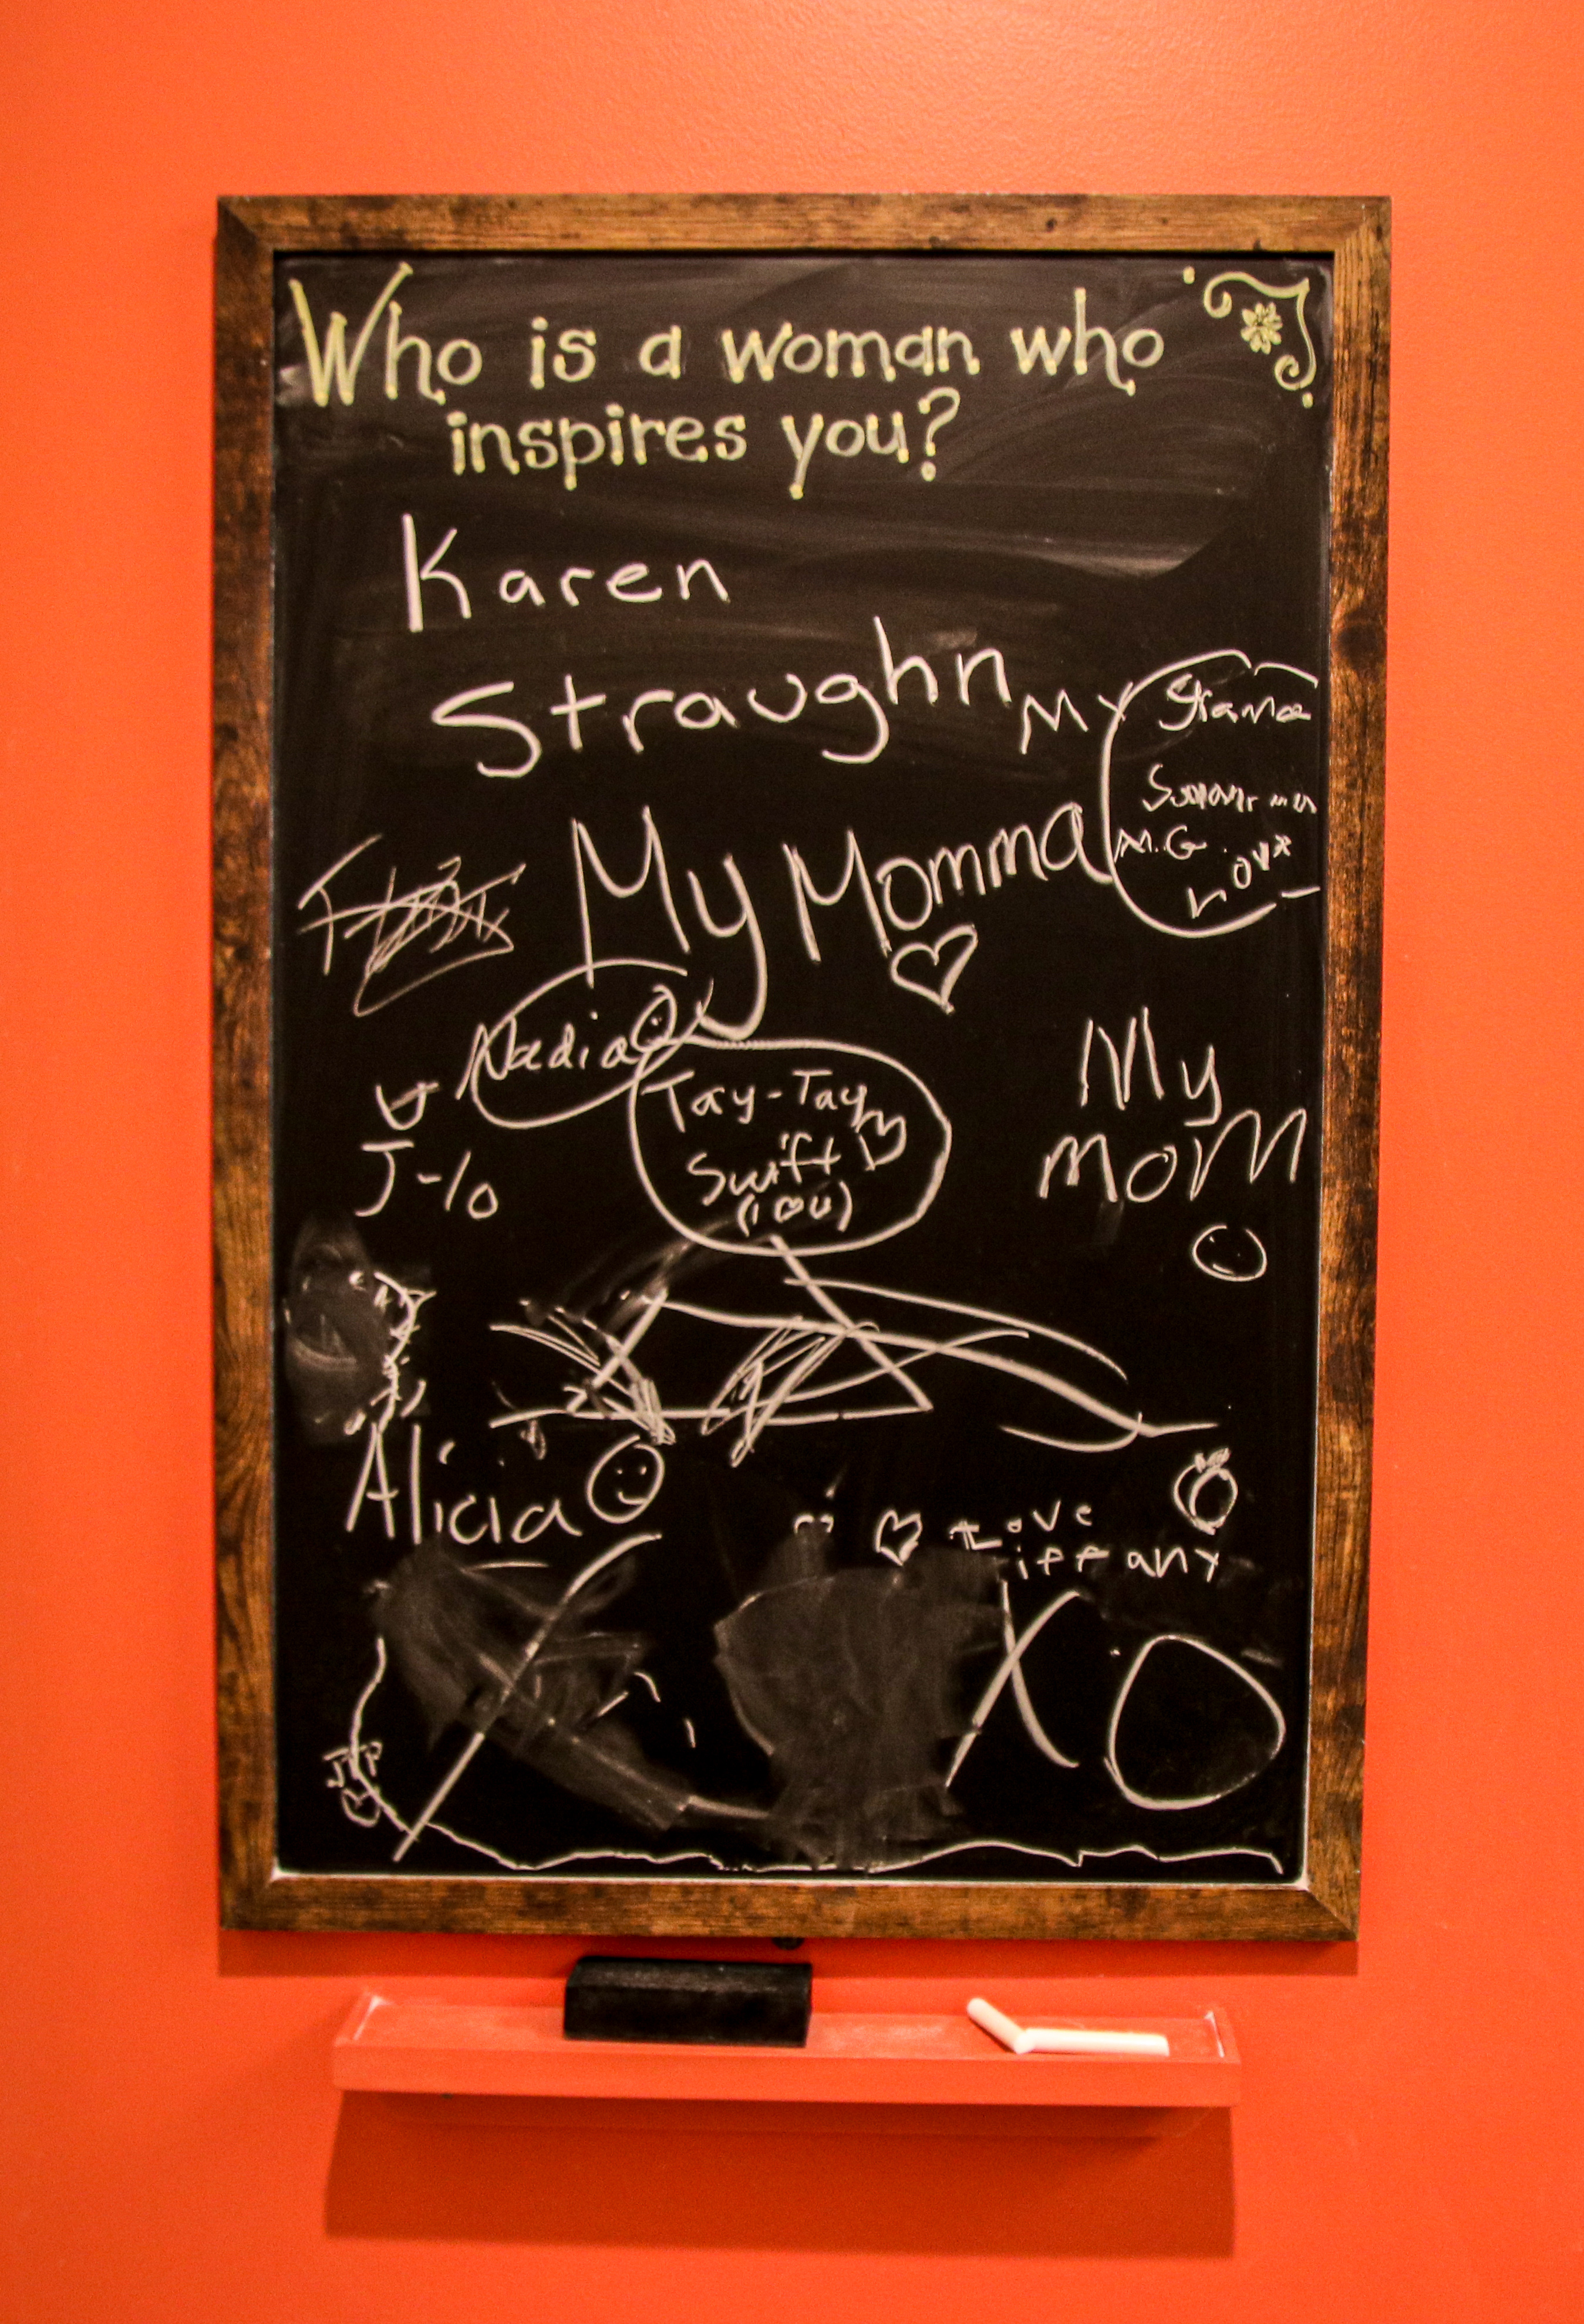 Who is a woman who
inspires you?
Karen
Straughn
My
M.G.
Love
My Momma
Nadia
Tay-Tay
Swift
(I ♡ U)
J-lo
My
moM
Alicia
Love
tiffany
XO